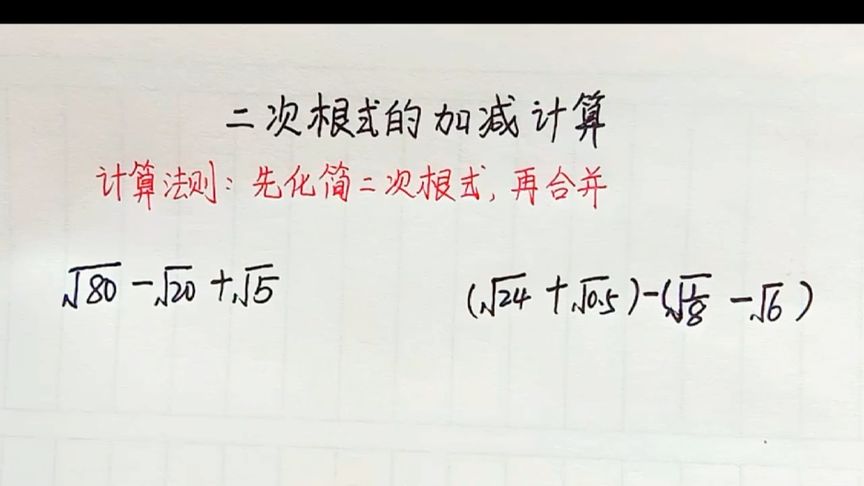 二次根式的加减计算
计算法则：先化简二次根式，再合并
√80 -√20 +√5
(√24 +√0.5)-(√1/8 -√6)